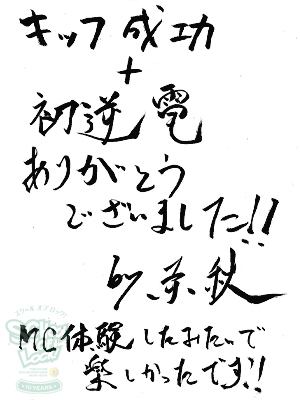 キップ成功
+
初逆電
ありがとう
ございました!!
by 英秋
MC体験したみたいで
楽しかったです!!